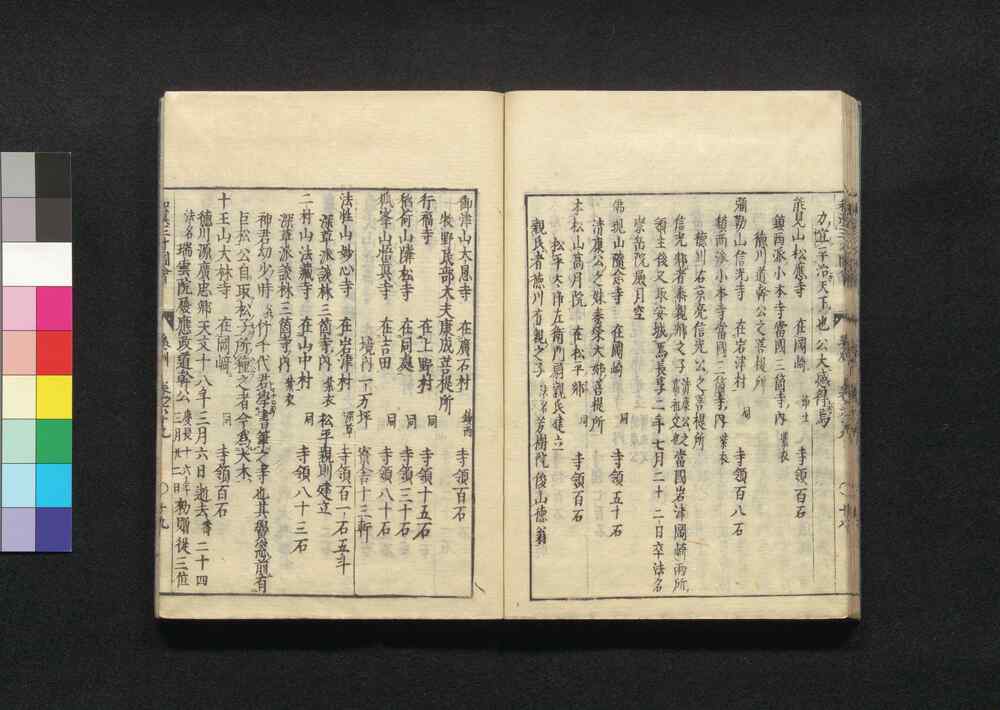 力冝平治天下也公大感得焉
能見山松應寺 在岡崎 寺領百石
鎮西派小本寺當國三箇寺ノ内 紫衣
徳川道幹公之菩提所
彌勒山信光寺 在岩津村 同 寺領百八石
鎮西派小本寺當國三箇寺ノ内 紫衣
徳川右京亮信光公之菩提所
信光郷者泰親郷之子 清康公之高祖父也 當國岩津岡﨑兩所ノ
領主後又取安城 二年七月二十二日卒法名
崇岳院殿月空
佛現山隨念寺 在岡崎 同 寺領五十石
清康公之妹 大姉菩提所
松平太郎左衛門尉親氏建立
本松山高月院 在松平郷 同 寺領百石
親氏者徳川有親之子 法名芳樹院俊山徳翁
御津山大恩寺 在廣石村 鎮西 寺領百石
牧野民部大夫康成菩提所
行福寺 在上野村 同 寺領十五石
稻荷山隣松寺 在同處 同 寺領三十石
孤峯山悟真寺 在吉田 同 寺領八十石
境内一万坪 寮舎十三軒
法性山妙心寺 在岩津村 深草 寺領百一石五斗
深草派談林三箇寺ノ内 紫衣 松平親則建立
二村山法藏寺 在山中村 同 寺領八十三石
深草派談林三箇寺ノ内 紫衣
神君幼少ノ時 竹千代君 學書筆之寺也其雙 前有
巨松公自取松子所種之者今為大木
十王山大林寺 在岡﨑 同 寺領百石
徳川源廣忠郷天文十八年三月六日逝去 齢二十四
法名瑞雲院殿應政道幹公 慶長十六年三月廿二日勅贈從三位